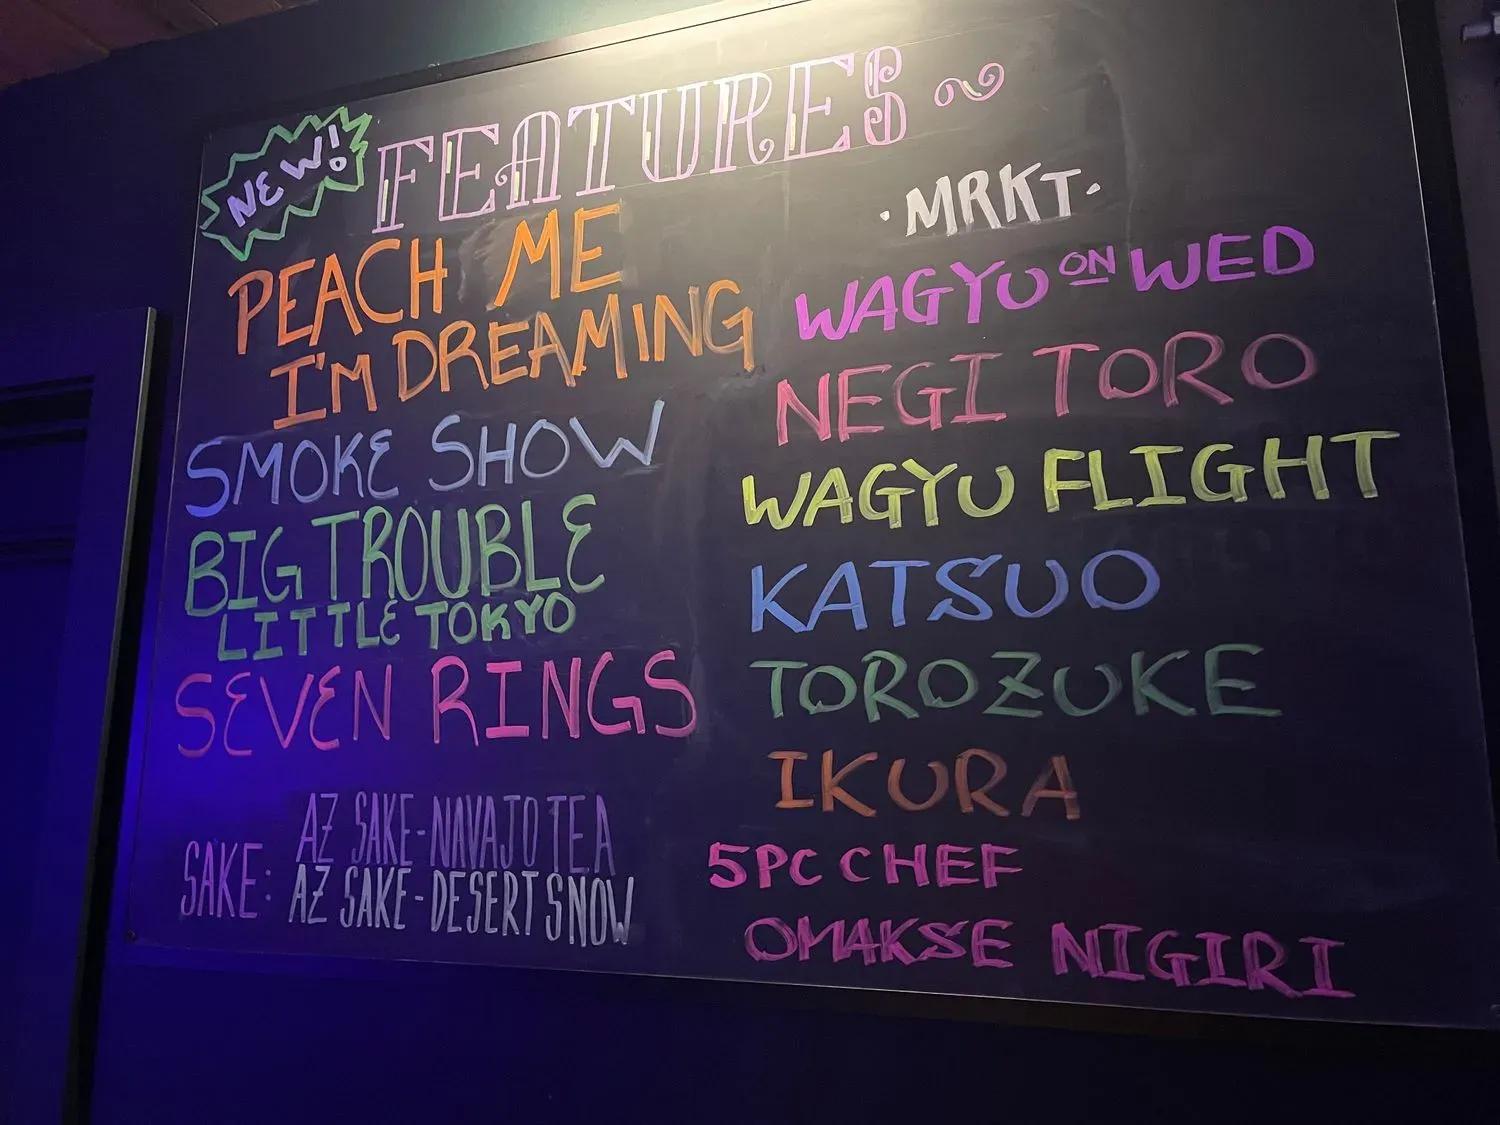 NEW!
FEATURES
PEACH ME
I'M DREAMING
SMOKE SHOW
BIG TROUBLE
LITTLE TOKYO
SEVEN RINGS
SAKE:
AZ SAKE-NAVAJO TEA
AZ SAKE-DESERT SNOW
·MRKT·
WAGYU ON WED
NEGI TORO
WAGYU FLIGHT
KATSUO
TOROZUKE
IKURA
5PC CHEF
OMAKSE NIGIRI